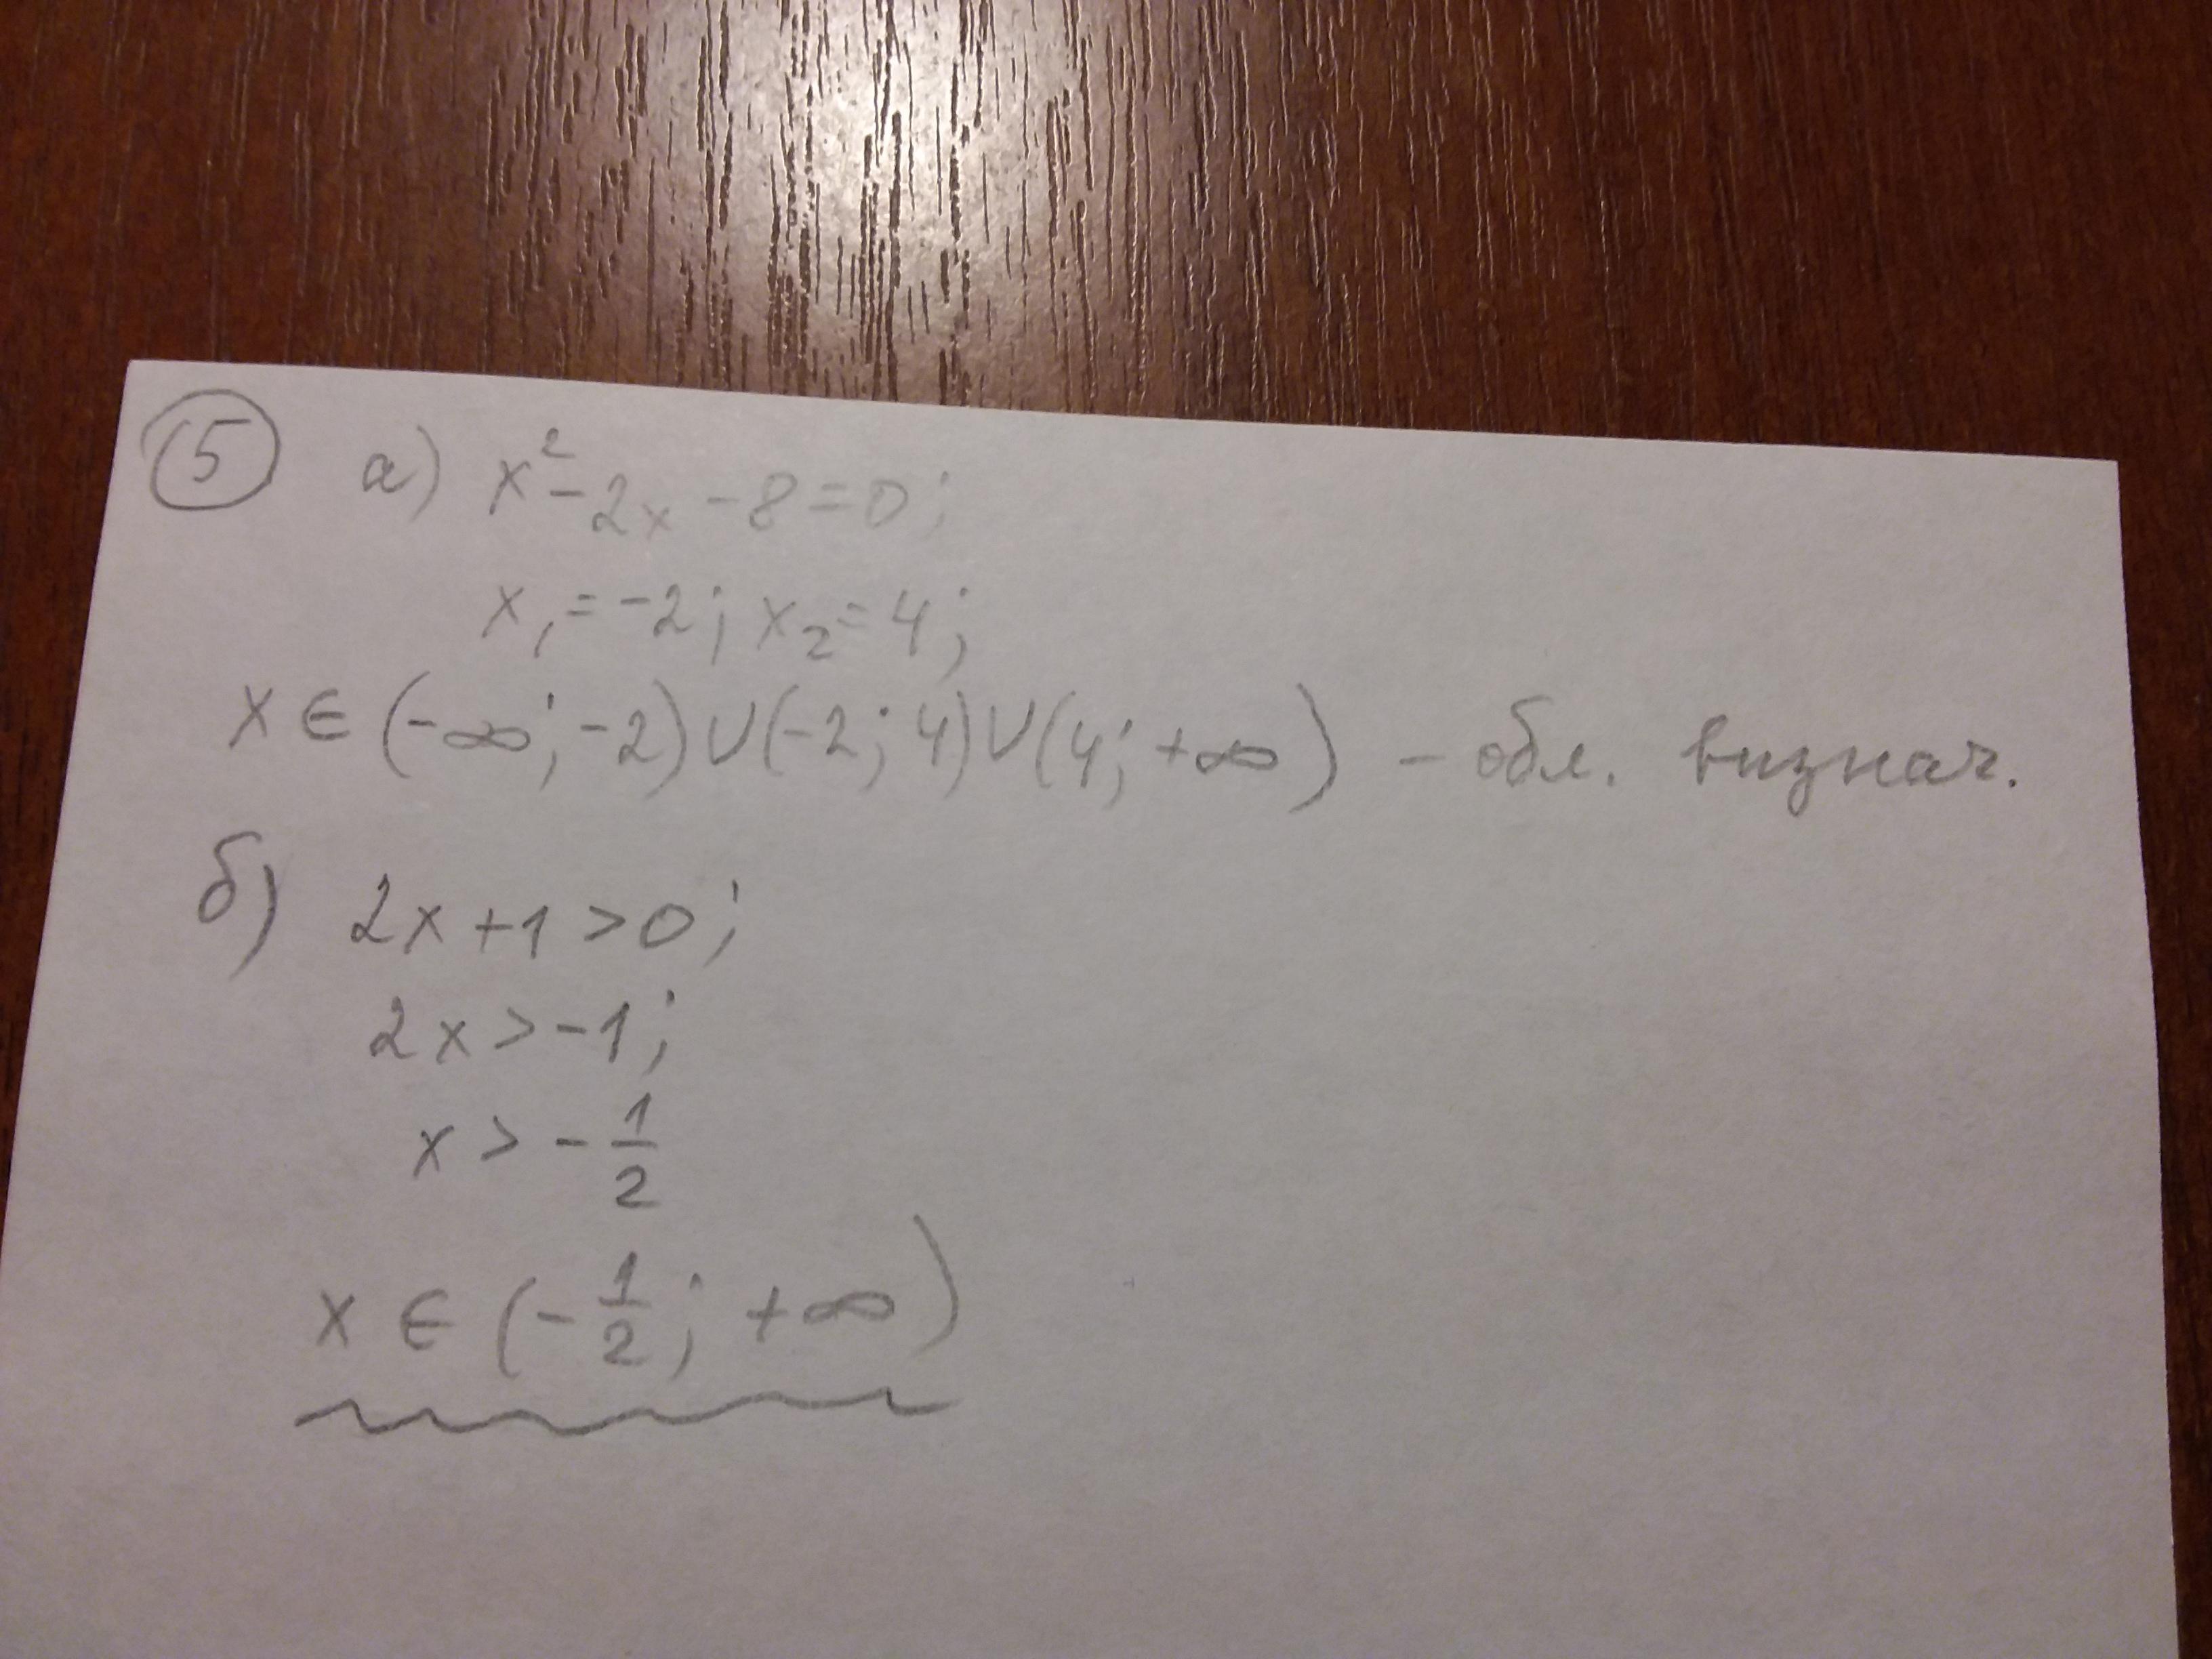 5 а) x² - 2x - 8 = 0;
x₁ = -2; x₂ = 4;
x ∈ (-∞; -2) ∪ (-2; 4) ∪ (4; +∞) - обл. визнач.
б) 2x + 1 > 0;
2x > -1;
x > - 1/2
x ∈ (- 1/2; +∞)